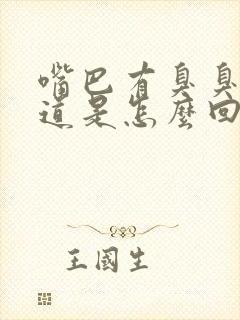 嘴巴有臭臭
道是怎麼回
王國生